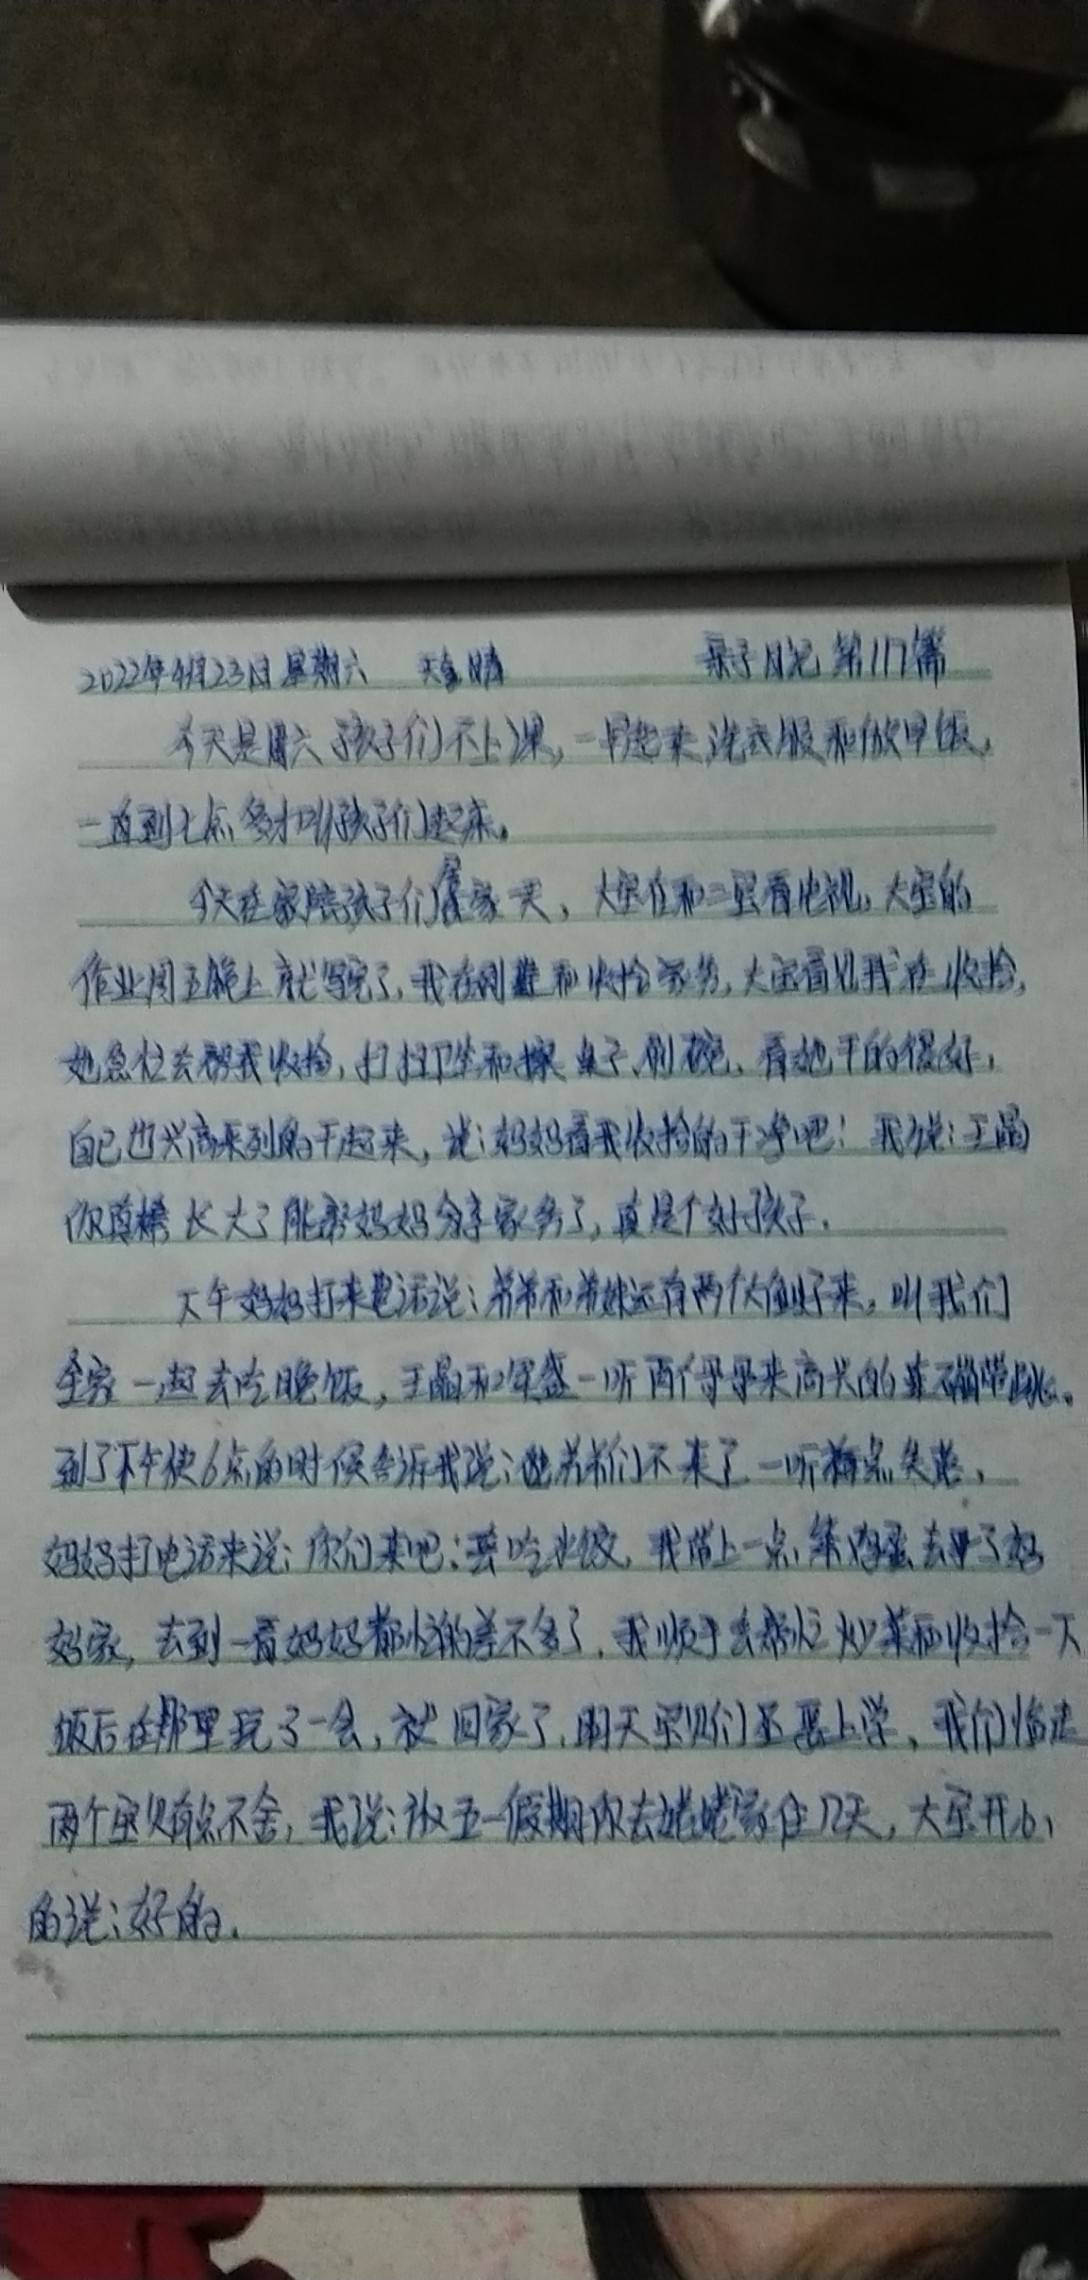 2022年4月23日 星期六 天气晴 亲子日记 第117篇
今天是周六孩子们不上课，一早起来洗衣服和做早饭，
一直到七点多才叫孩子们起床。
今天在家陪孩子们 家一天，大宝在和二宝看电视，大宝的
作业周五晚上就写完了，我在刷 和收拾家务，大宝看见我在收拾，
她急忙去帮我收拾，打扫卫生和擦桌子、刷碗、看她干的很好，
自己也兴高采烈的干起来，说：妈妈看我收拾的干净吧！我说：王晶
你真棒 长大了能帮妈妈分享家务了，真是个好孩子。
下午妈妈打来电话说：弟弟和弟妹还有两个侄女仔来，叫我们
全家一起去吃晚饭，王晶和 盛一听两个 来高兴的 蹦带跳。
到了下午快6点的时候告诉我说： 弟弟们不来了一听 点失落，
妈妈打电话来说：你们来吧：要吃水饺，我带上一点 鸡蛋去 了妈
妈家，去到一看妈妈都忙的差不多了，我顺手去帮忙炒菜和收拾一下
饭后在那里玩了一会，就回家了，明天宝贝们还要上学，我们临走
两个宝贝有点不舍，我说：放五一假期你去姥姥家住几天，大宝开心
的说：好的。